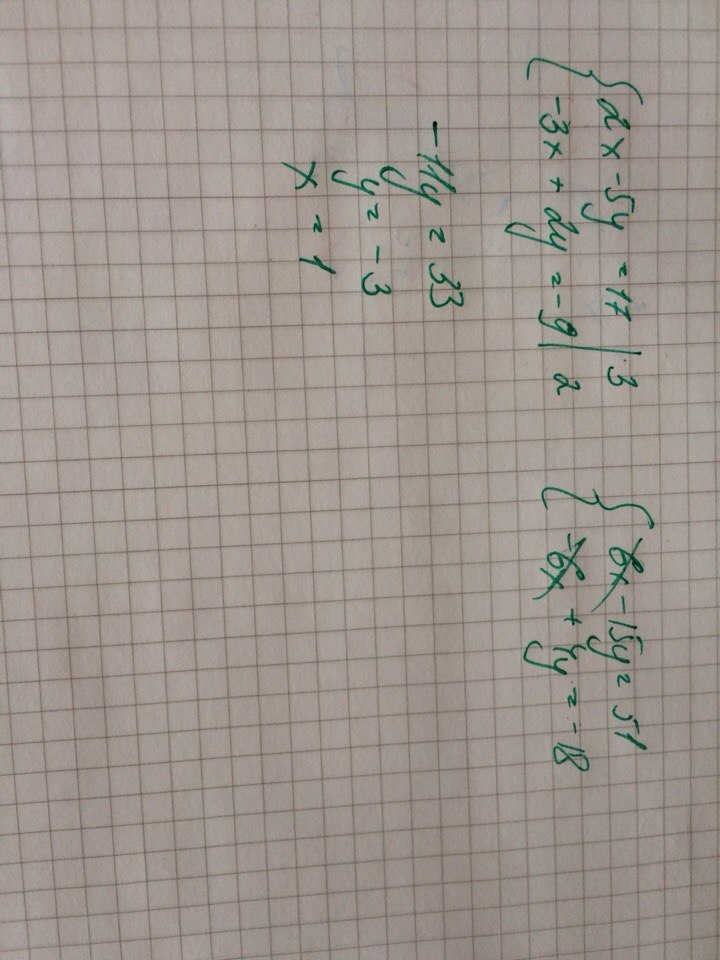 { 2x - 5y = 17 | 3
-3x + 2y = -9 | 2
{ 6x - 15y = 51
-6x + 4y = -18
-11y = 33
y = -3
x = 1